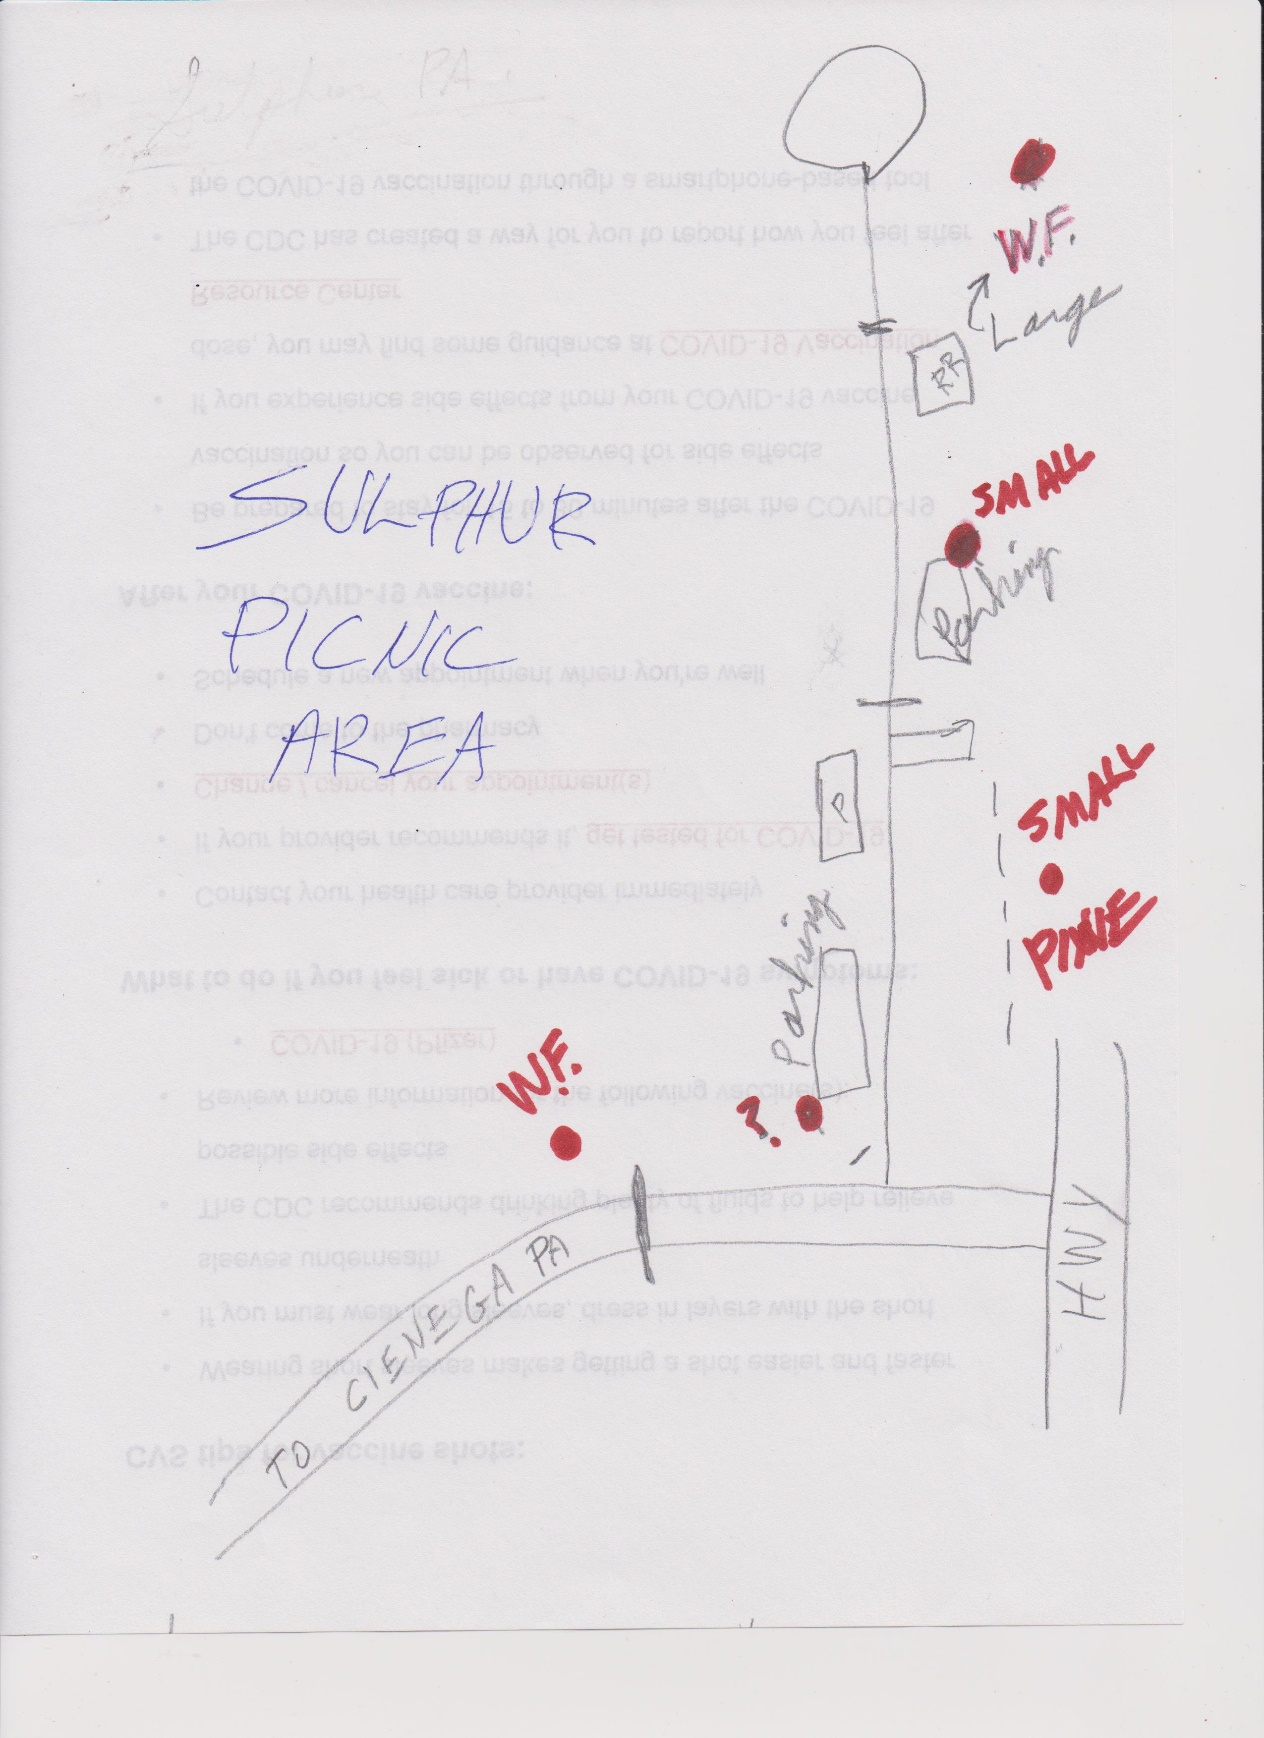 Sulphur PA
W.F.
Large
RR
SMALL
Parking
SULPHUR
PICNIC
AREA
P
SMALL
PIXIE
Parking
W.F.
?
HWY
TO CIENEGA PA
CVS tips for vaccine shots:
• Wearing short sleeves makes getting a shot easier and faster
• If you must wear long sleeves, dress in layers with the short
sleeves underneath
• The CDC recommends drinking plenty of fluids to help relieve
possible side effects
• Review more information on the following vaccine(s):
• COVID-19 (Pfizer)
What to do if you feel sick or have COVID-19 symptoms:
• Contact your health care provider immediately
• If your provider recommends it, get tested for COVID-19
• Change / cancel your appointment(s)
• Don't come to the pharmacy
• Schedule a new appointment when you're well
After your COVID-19 vaccine:
• Be prepared to stay for 15 to 30 minutes after the COVID-19
vaccination so you can be observed for side effects
• If you experience side effects from your COVID-19 vaccine
dose, you may find some guidance at COVID-19 Vaccination
Resource Center
• The CDC has created a way for you to report how you feel after
the COVID-19 vaccination through a smartphone-based tool